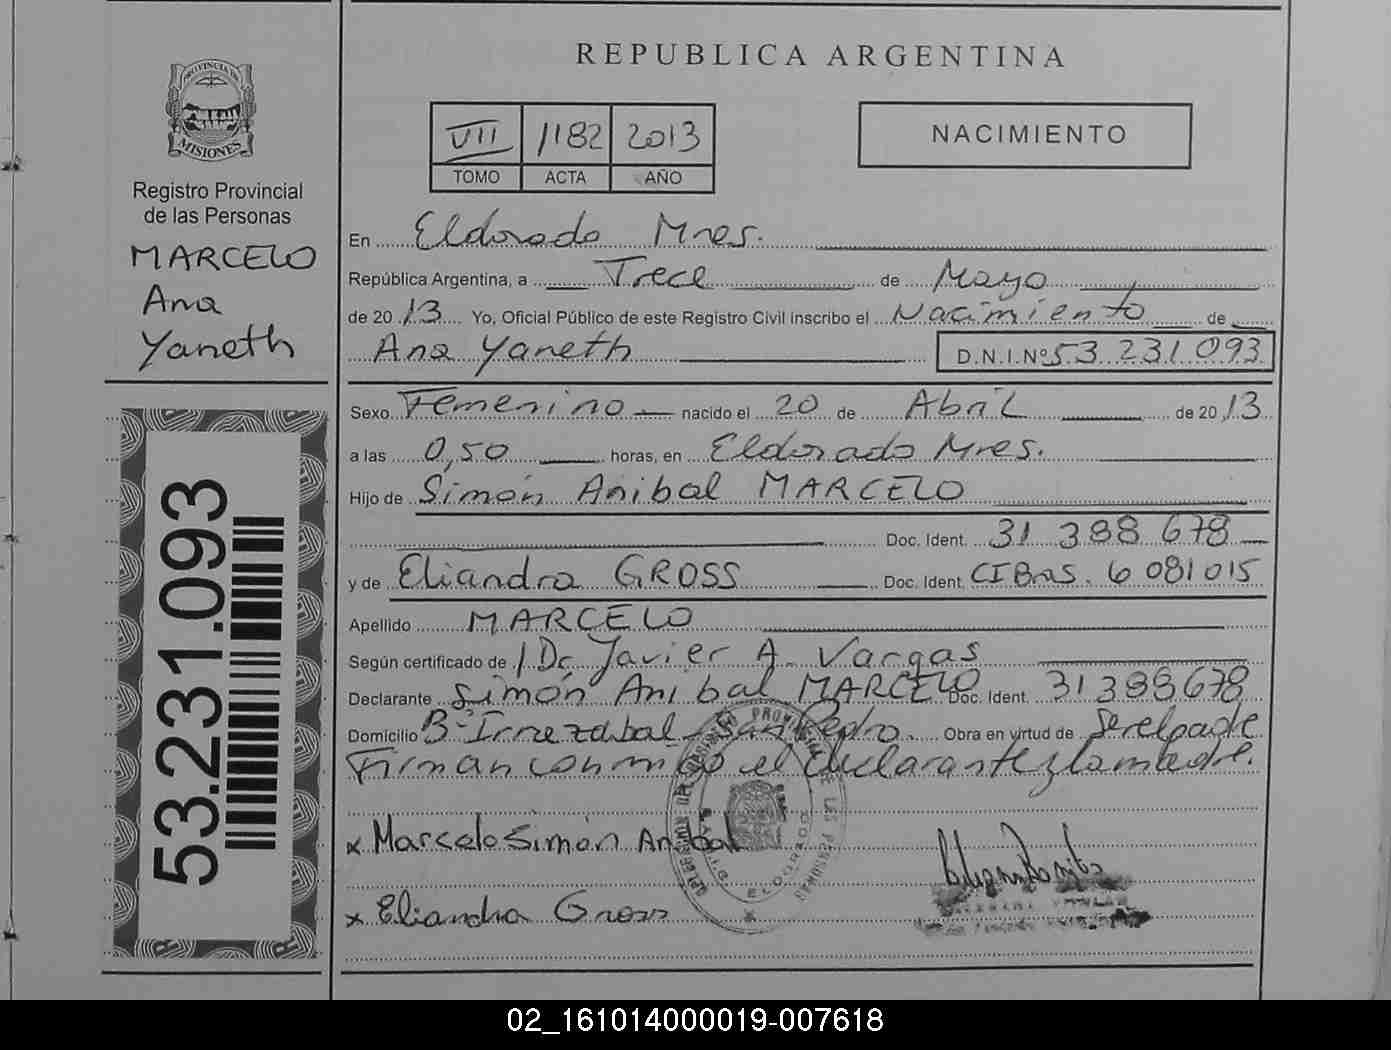 REPUBLICA ARGENTINA
PROVINCIA DE
MISIONES
Registro Provincial
de las Personas
MARCELO
Ana
Yaneth
VII 1182 2013
TOMO ACTA AÑO
NACIMIENTO
En Eldorado Mnes.
República Argentina, a Trece de Mayo
de 20 13 Yo, Oficial Público de este Registro Civil inscribo el Nacimiento de
Ana Yaneth D.N.I.Nº 53 231 093
Sexo Femenino nacido el 20 de Abril de 20 13
a las 0,50 horas, en Eldorado Mnes.
Hijo de Simón Anibal MARCELO
Doc. Ident. 31 388 678
y de Eliandra GROSS Doc. Ident. CI Bras. 6 081 015
Apellido MARCELO
Según certificado de Dr Javier A. Vargas
Declarante Simón Anibal MARCELO Doc. Ident. 31388678
Domicilio Bº Irrazabal - San Pedro. Obra en virtud de
Firman conmigo el declarante y la madre.
x Marcelo Simón Anibal
x Eliandra Gross
ELDORADO
53.231.093
02_161014000019-007618